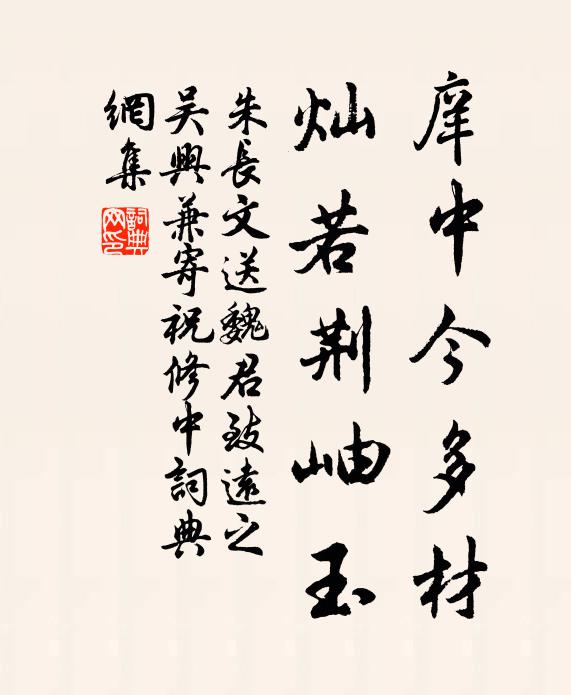 庠中今多材
灿若荆岫玉
朱長文送魏君致遠之
吴興兼寄祝修中詞典
網集
詞典网印